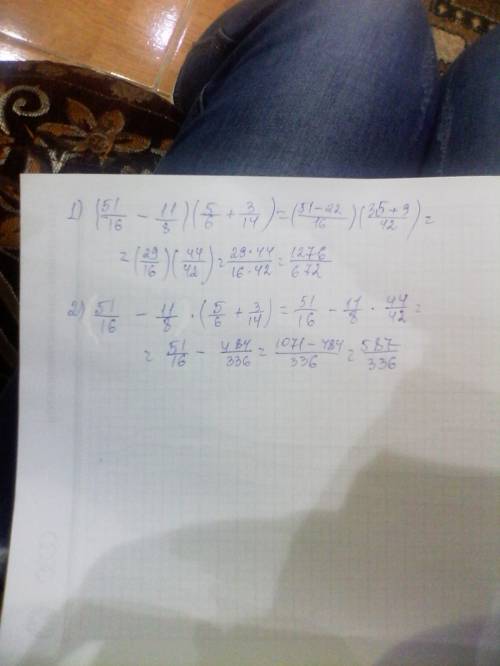 1) (51/16 - 11/8)(5/6 + 3/14) = (51-22/16)(35+9/42) =
= (29/16)(44/42) = 29·44/16·42 = 1276/672
2) 51/16 - 11/8 · (5/6 + 3/14) = 51/16 - 11/8 · 44/42 =
= 51/16 - 484/336 = 1071-484/336 = 587/336